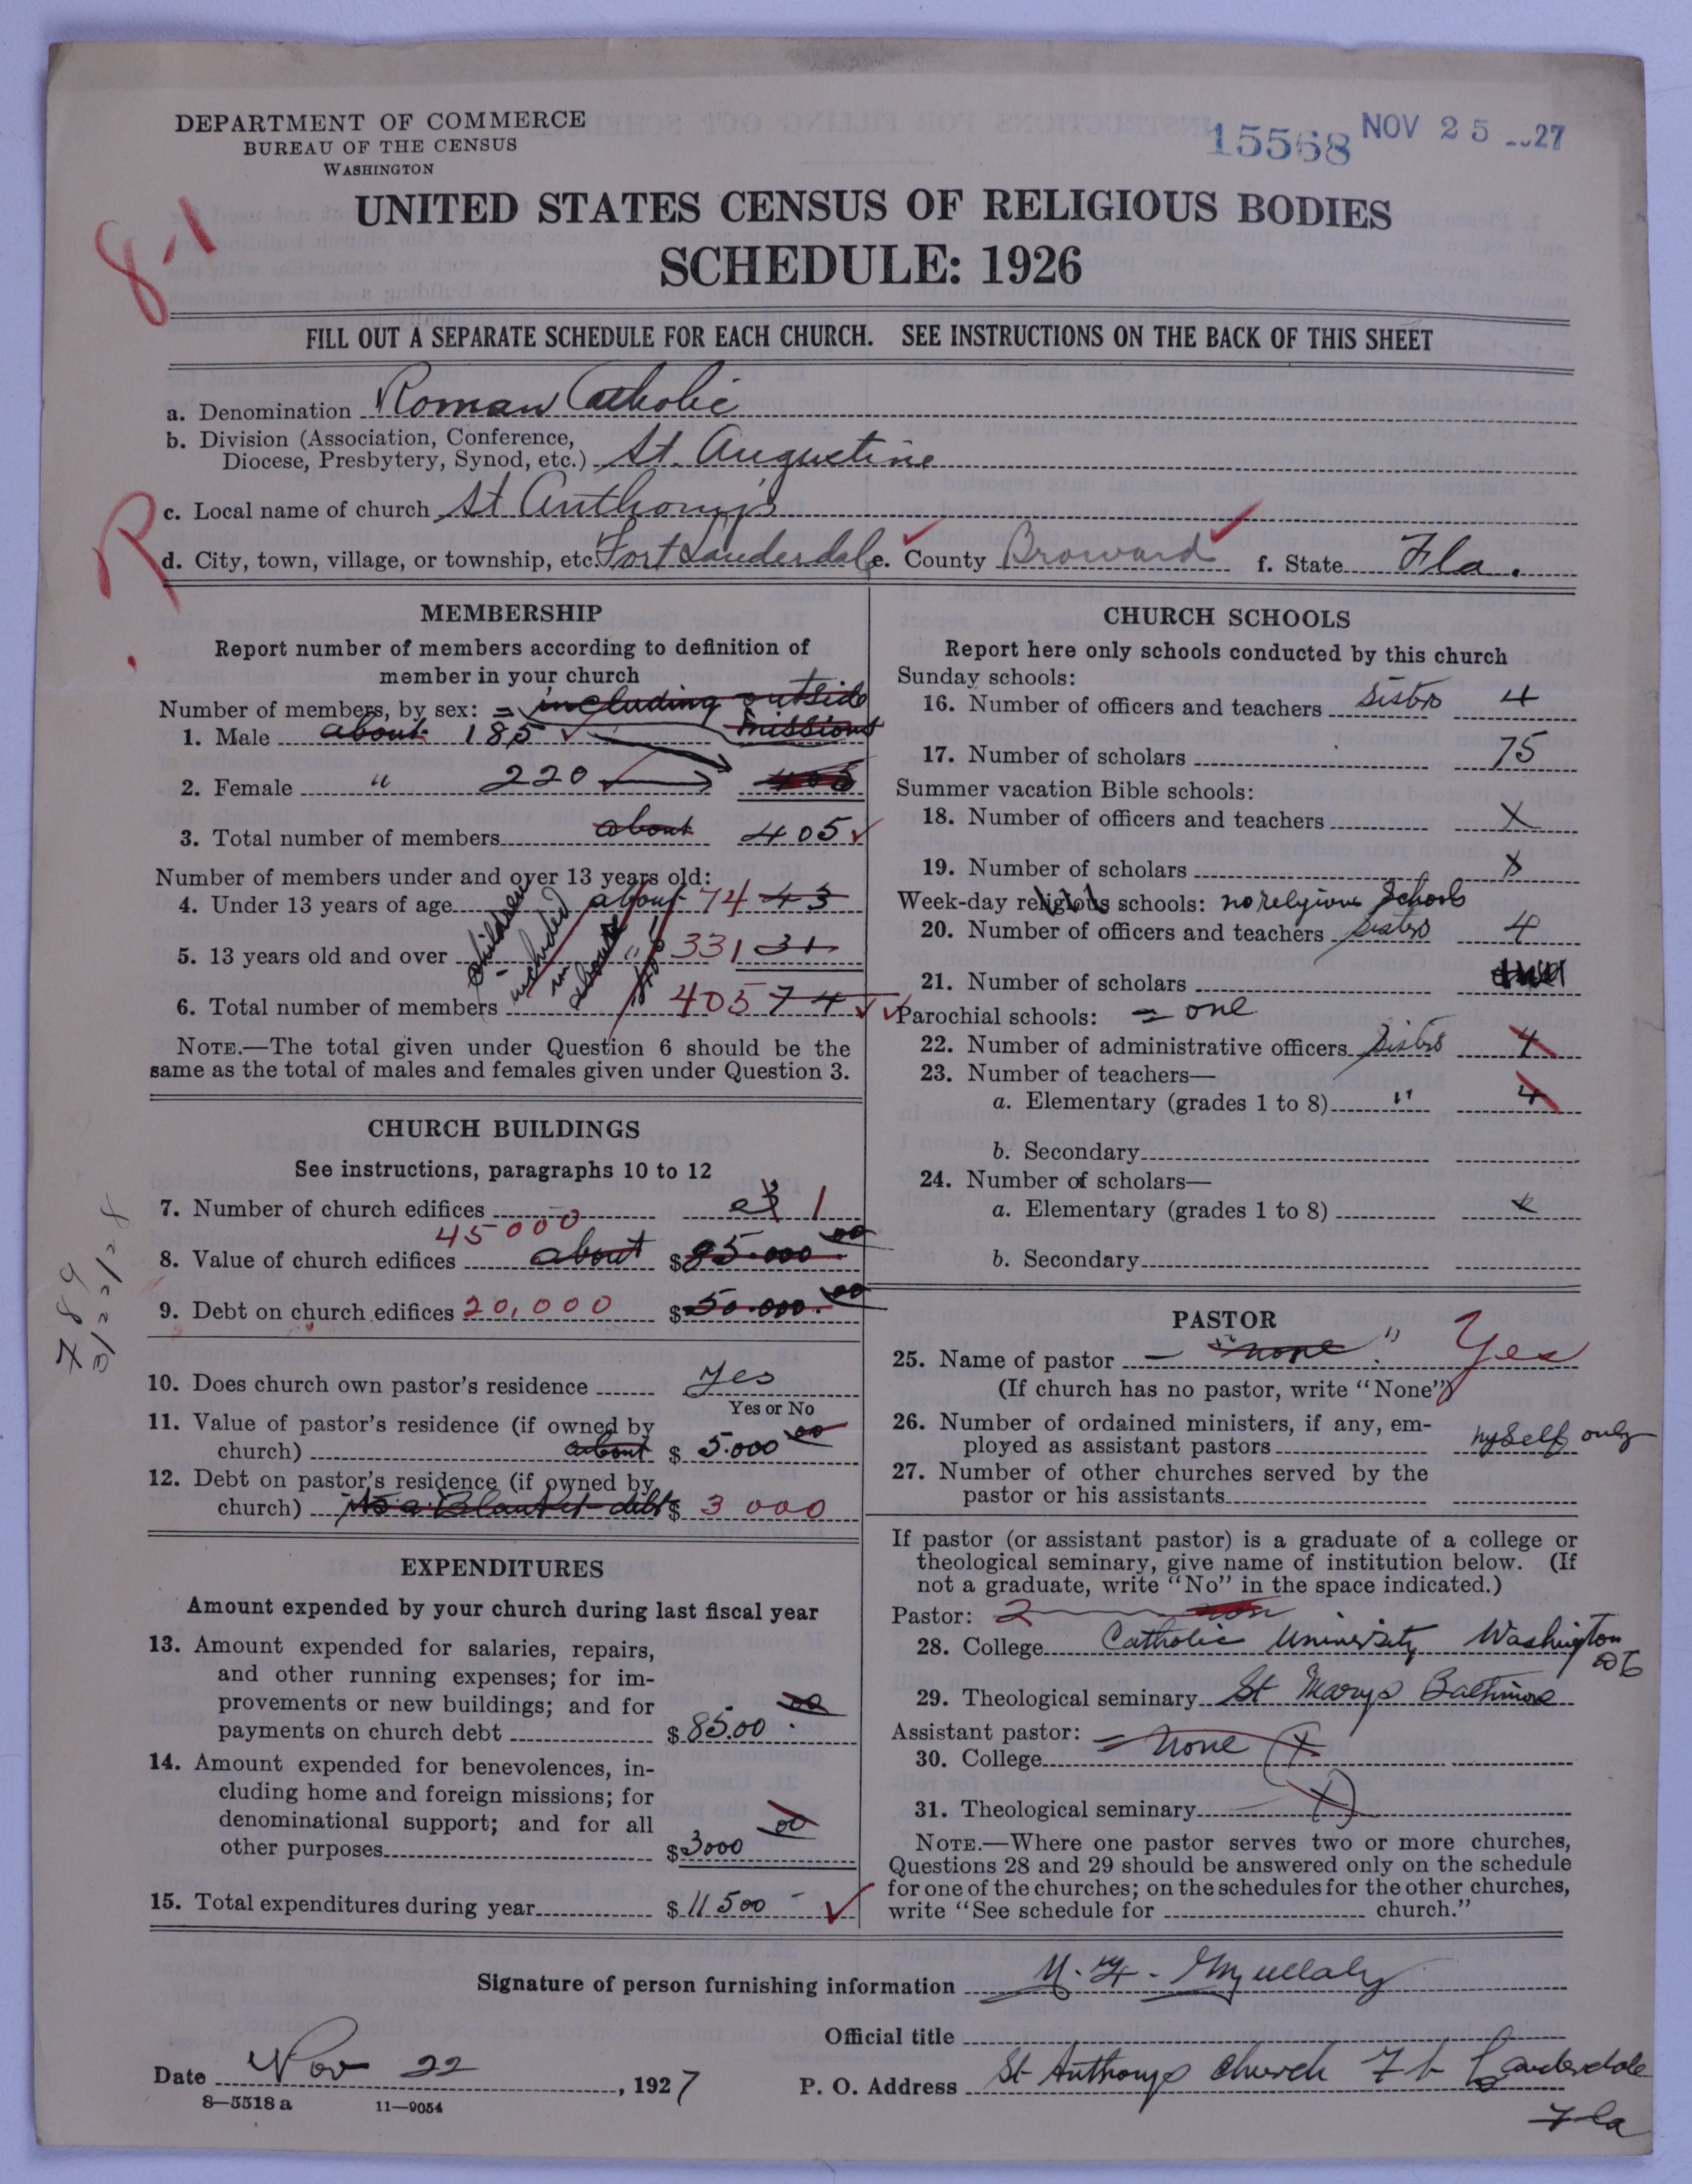 DEPARTMENT OF COMMERCE
BUREAU OF THE CENSUS
WASHINGTON
15568 NOV 25 27
8-1
UNITED STATES CENSUS OF RELIGIOUS BODIES
SCHEDULE: 1926
FILL OUT A SEPARATE SCHEDULE FOR EACH CHURCH. SEE INSTRUCTIONS ON THE BACK OF THIS SHEET
a. Denomination Roman Catholic
b. Division (Association, Conference,
Diocese, Presbytery, Synod, etc.) St. Augustine
R
c. Local name of church St Anthony's
d. City, town, village, or township, etc. Fort Lauderdale e. County Broward f. State Fla.
MEMBERSHIP
Report number of members according to definition of
member in your church
Number of members, by sex: = including outside
missions
1. Male about 185
2. Female " 220 405
3. Total number of members about 405
Number of members under and over 13 years old:
4. Under 13 years of age about 74 43
5. 13 years old and over " 331 31
6. Total number of members 405 74
children
included
in
about
NOTE.—The total given under Question 6 should be the
same as the total of males and females given under Question 3.
CHURCH BUILDINGS
See instructions, paragraphs 10 to 12
7. Number of church edifices 1
45000
8. Value of church edifices about $85.000 00
9. Debt on church edifices 20,000 $50.000. 00
10. Does church own pastor's residence Yes
Yes or No
11. Value of pastor's residence (if owned by
church) about $ 5.000 00
12. Debt on pastor's residence (if owned by
church) Blanket debt $ 3000
EXPENDITURES
Amount expended by your church during last fiscal year
13. Amount expended for salaries, repairs,
and other running expenses; for im-
provements or new buildings; and for
payments on church debt $ 8500. 00
14. Amount expended for benevolences, in-
cluding home and foreign missions; for
denominational support; and for all
other purposes $3000 00
15. Total expenditures during year $ 11500 -
CHURCH SCHOOLS
Report here only schools conducted by this church
Sunday schools:
16. Number of officers and teachers Sisters 4
17. Number of scholars 75
Summer vacation Bible schools:
18. Number of officers and teachers X
19. Number of scholars X
Week-day religious schools: no religious Schools
20. Number of officers and teachers Sisters 4
21. Number of scholars
Parochial schools: = one
22. Number of administrative officers Sisters 4
23. Number of teachers—
a. Elementary (grades 1 to 8) " 4
b. Secondary
24. Number of scholars—
a. Elementary (grades 1 to 8) x
b. Secondary
PASTOR
25. Name of pastor — "none". Yes
(If church has no pastor, write "None")
26. Number of ordained ministers, if any, em-
ployed as assistant pastors myself only
27. Number of other churches served by the
pastor or his assistants
If pastor (or assistant pastor) is a graduate of a college or
theological seminary, give name of institution below. (If
not a graduate, write "No" in the space indicated.)
Pastor: 2
28. College Catholic University Washington
DC
29. Theological seminary St Marys Baltimore
Assistant pastor: = none
30. College
31. Theological seminary
NOTE.—Where one pastor serves two or more churches,
Questions 28 and 29 should be answered only on the schedule
for one of the churches; on the schedules for the other churches,
write "See schedule for church."
Signature of person furnishing information M. F. Mullaly
Official title
Date Nov 22, 1927
P. O. Address St Anthonys church Ft Lauderdale
Fla
8—5518 a 11—9054